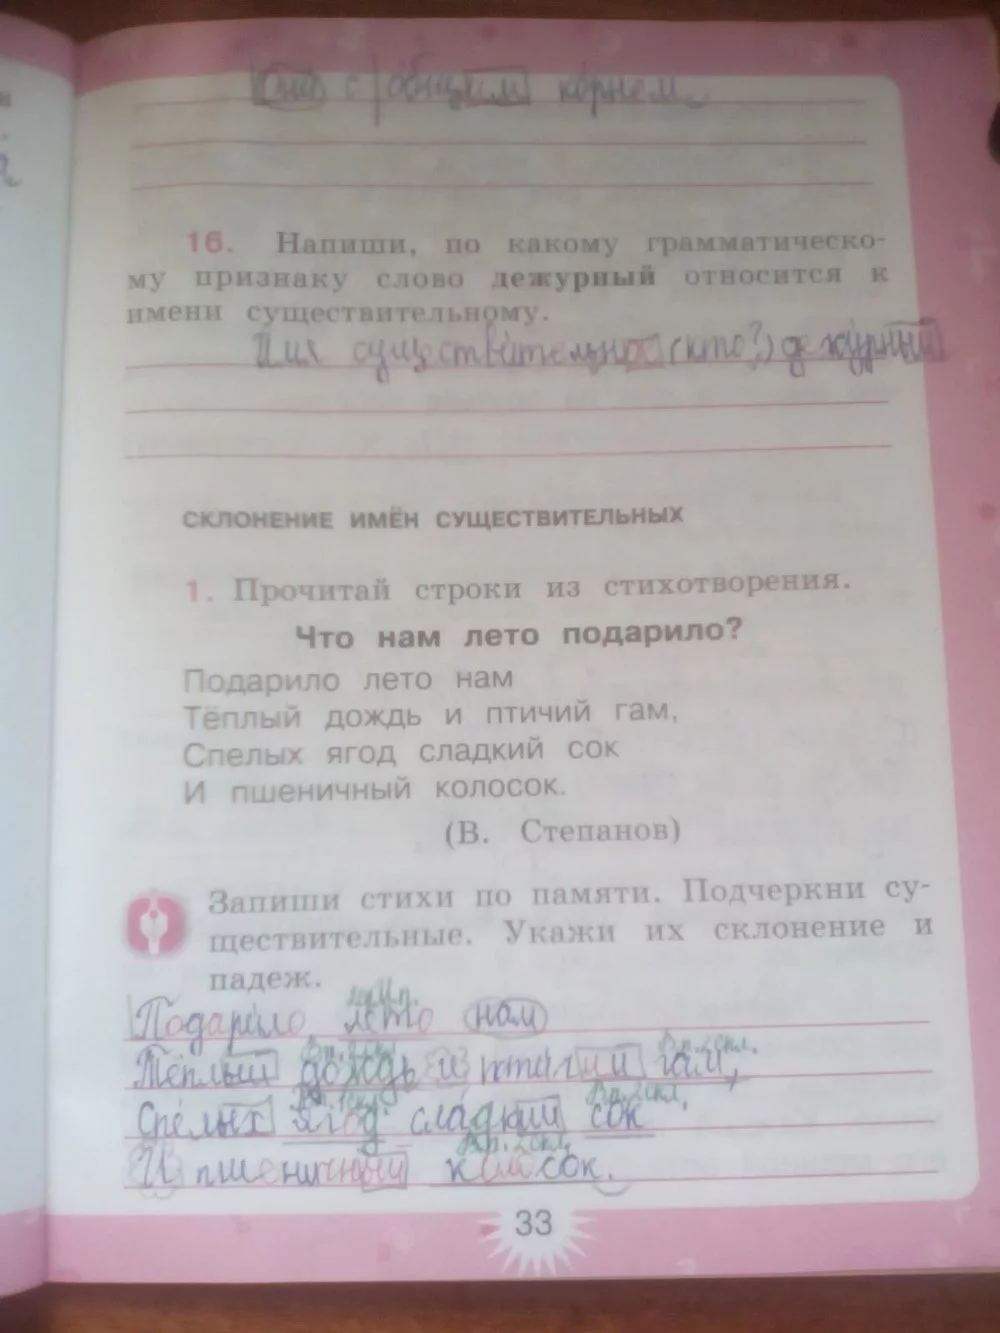 с общим корнем.
16. Напиши, по какому грамматическо-
му признаку слово дежурный относится к
имени существительному.
Имя существительное (кто?) дежурный
СКЛОНЕНИЕ ИМЁН СУЩЕСТВИТЕЛЬНЫХ
1. Прочитай строки из стихотворения.
Что нам лето подарило?
Подарило лето нам
Тёплый дождь и птичий гам,
Спелых ягод сладкий сок
И пшеничный колосок.
(В. Степанов)
Запиши стихи по памяти. Подчеркни су-
ществительные. Укажи их склонение и
падеж.
И.п.
Подарило лето нам
В.п. 2скл. В.п. 2скл.
Тёплый дождь и птичий гам,
Р.п. 1скл. В.п. 2скл.
Спелых ягод сладкий сок
В.п. 2скл.
И пшеничный колосок.
33